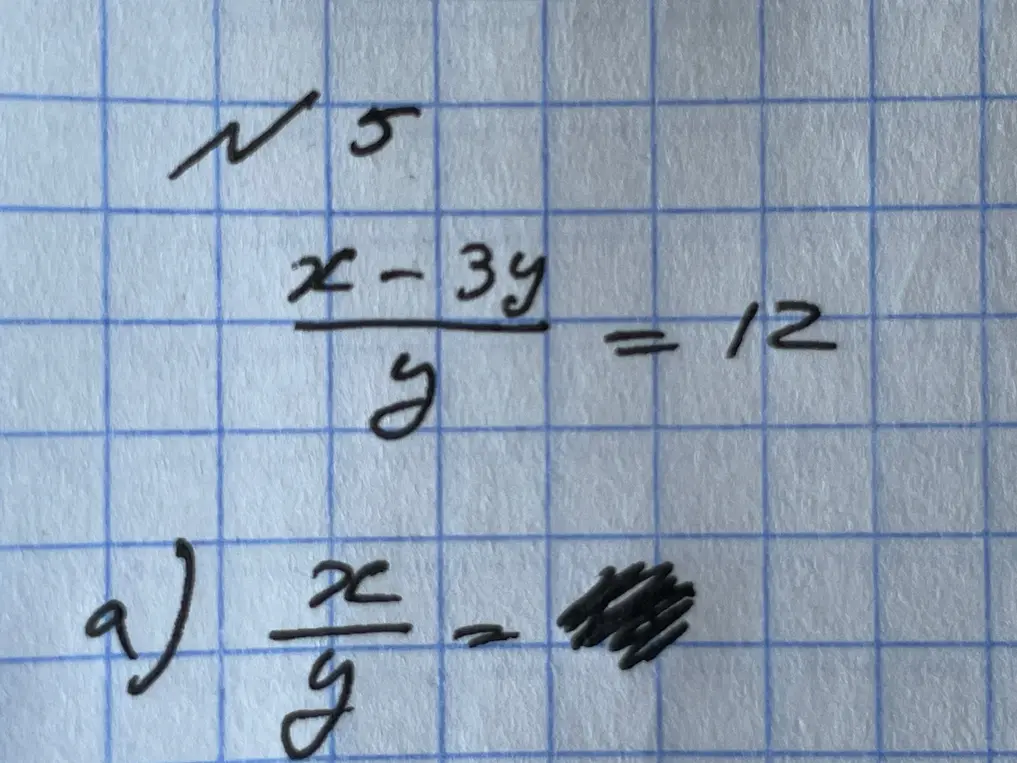 № 5
x - 3y
y
= 12
а) x
y
=